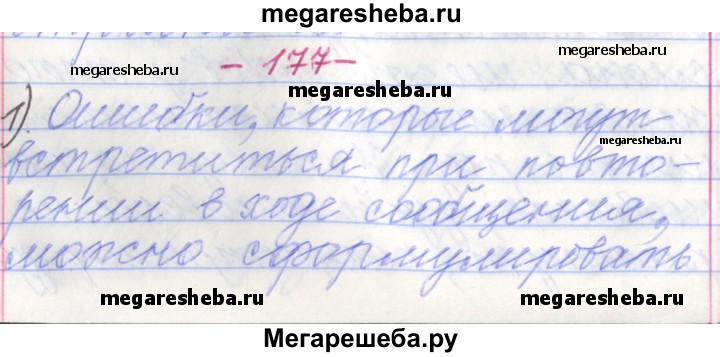 megaresheba.ru
- 177 -
megaresheba.ru
megaresheba.ru
megaresheba.ru
1). Ошибки, которые могут
megaresheba.ru
встретиться при повто-
рении в ходе сообщения,
можно сформулировать
megaresheba.ru
megaresheba.ru
Мегарешеба.ру